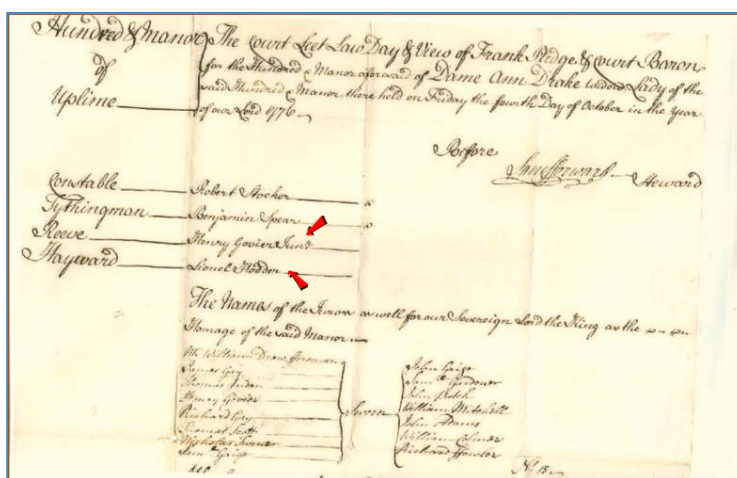 Hundred & Manor
of
Uplime
The Court Leet Law Day & View of Frank Pledge & Court Baron
for the Hundred & Manor aforesaid of Dame Ann Drake widow Lady of the
said Hundred & Manor there held on Friday the fourth Day of October in the Year
of our Lord 1776
Before
Steward
Constable Robert Stocker
Tythingman Benjamin Spear
Reeve Henry Govier Junr
Hayward Lionel Hodder
The Names of the Jurors as well for our Sovereign Lord the King as the
Homage of the said Manor
Mr William Drew foreman
James Guy
Thomas
Henry Govier
Richard Guy
Thomas Scott
Nicholas
Saml
Sworn
John
Saml Gardener
John
William Mitchell
John Adams
William
Richard Fowler
No. 15